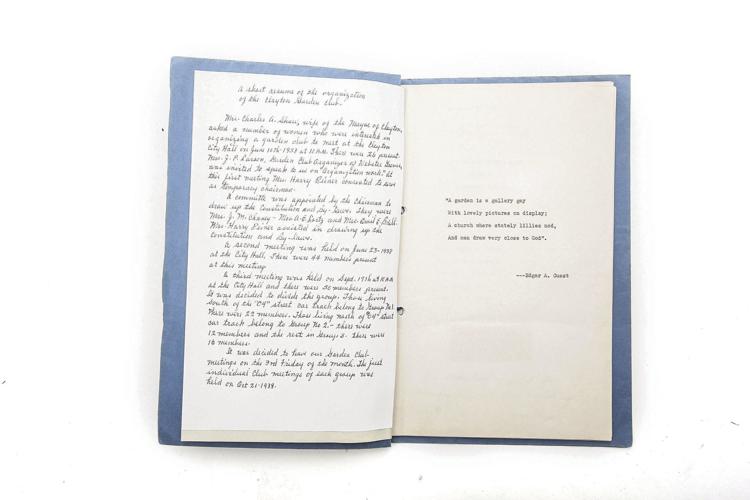 A short resume of the organization
of the Clayton Garden Club.
Mrs. Charles A. Shaw, wife of the Mayor of Clayton,
asked a number of women who were interested in
organizing a garden club to meet at the Clayton
City Hall on June 10th-1938 at 10 A.M. There were 26 present.
Mrs. J. P. Larson, Garden Club Organizer of Webster
was invited to speak to us on "Organization work." At
this first meeting Mrs. Harry consented to serve
as temporary chairman.
A committee was appointed by the Chairman to
draw up the Constitution and By-laws. They were
Mrs. J. M. Chaney - Mrs. A. E. and Mrs.
Mrs. Harry assisted in drawing up the
Constitution and By-laws.
A second meeting was held on June 23-1938
at the City Hall. There were 44 members present
at this meeting.
A third meeting was held on Sept. at 10 A.M.
at the City Hall and there were 50 members present.
It was decided to divide the group. Those living
South of the "04" street car track belong to Group No. 1.
There were 22 members. Those living north of "04" street
car track belong to Group No 2. - there were
12 members and the rest in Group 3. there were
16 members.
It was decided to have our Garden Club
meetings on the 3rd Friday of the month. The first
individual Club meetings of each group was
held on Oct 21-1938.
"A garden is a gallery gay
With lovely pictures on display;
A church where stately lillies nod,
And man draw very close to God".
---Edgar A. Guest